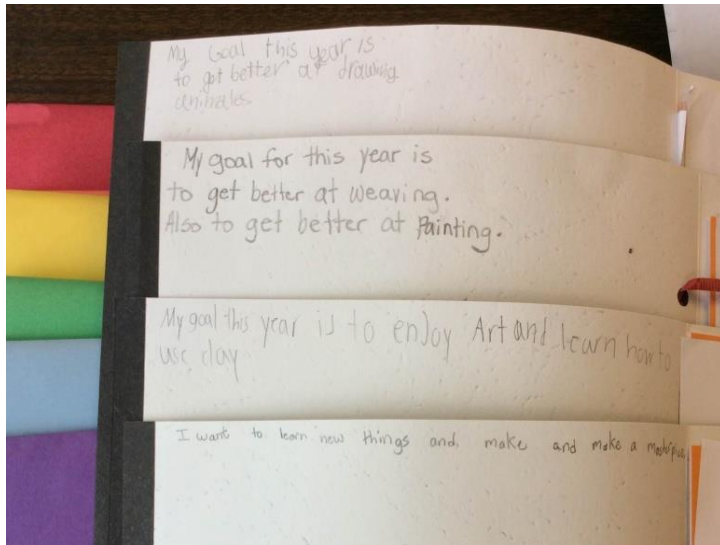 My Goal this year is
to get better at drawing
animales
My goal for this year is
to get better at weaving.
Also to get better at Painting.
My goal this year is to enjoy Art and learn how to
use clay
I want to learn new things and make and make a masterpiece